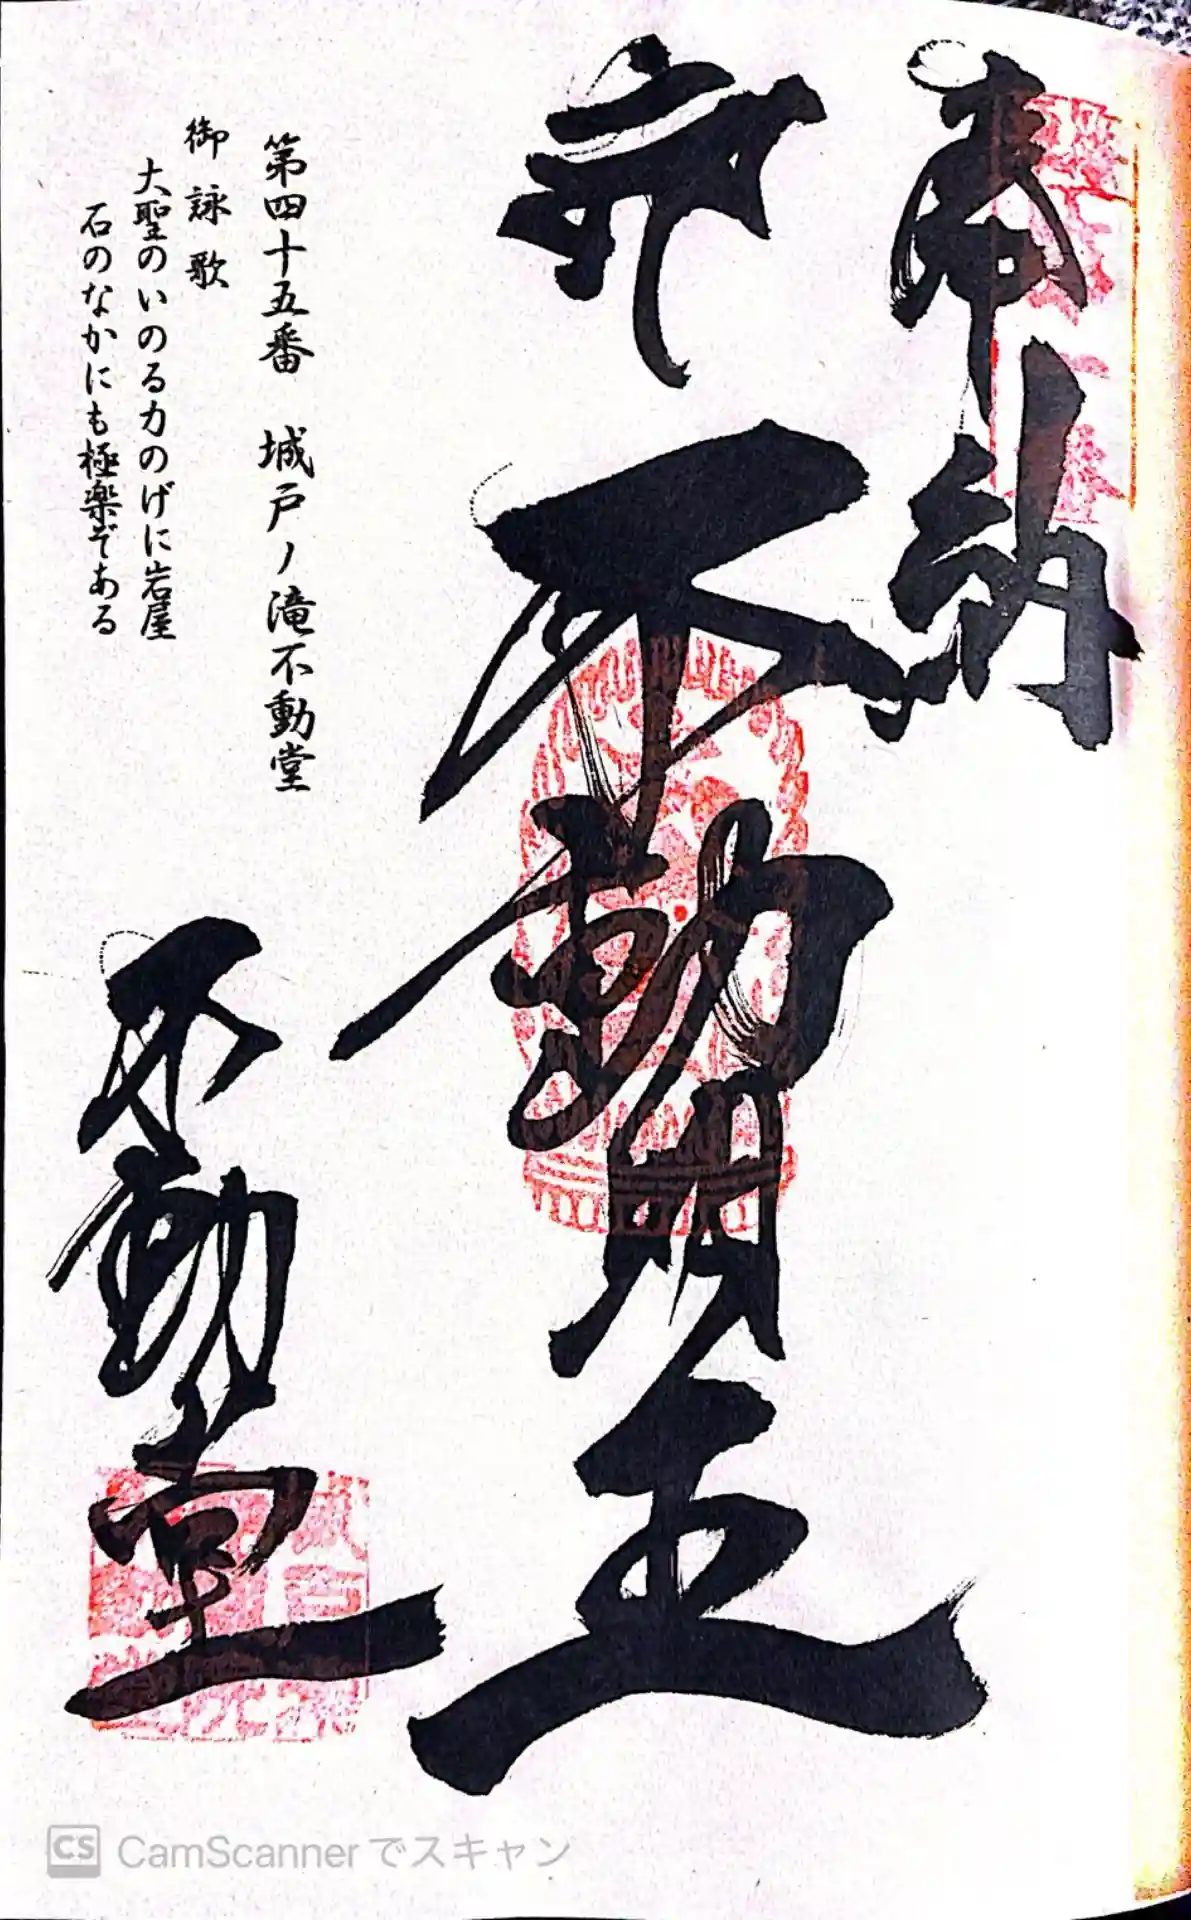 奉納
不動明王
第四十五番 城戸ノ滝不動堂
御詠歌
大聖のいのる力のげに岩屋
石のなかにも極楽ぞある
不動堂
CS CamScannerでスキャン